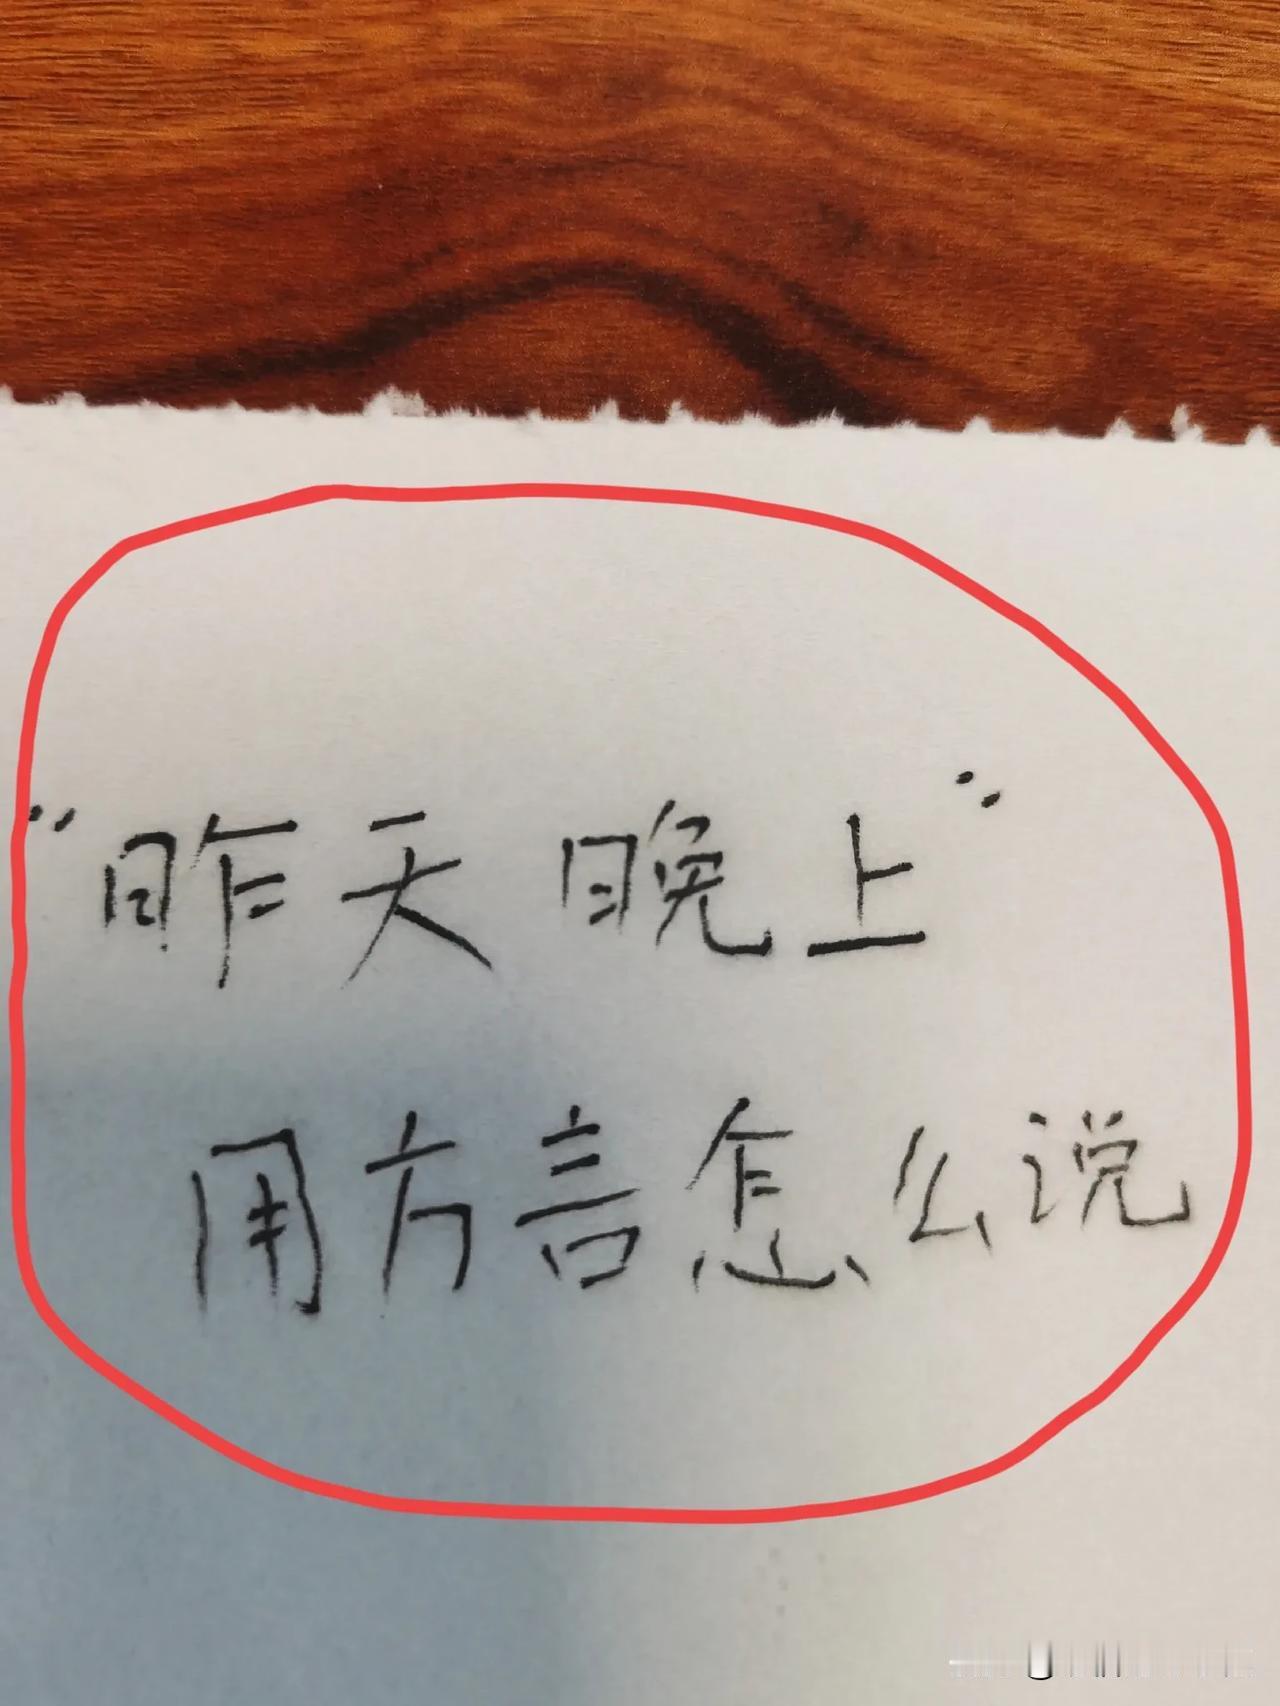 "昨天晚上"
用方言怎么说